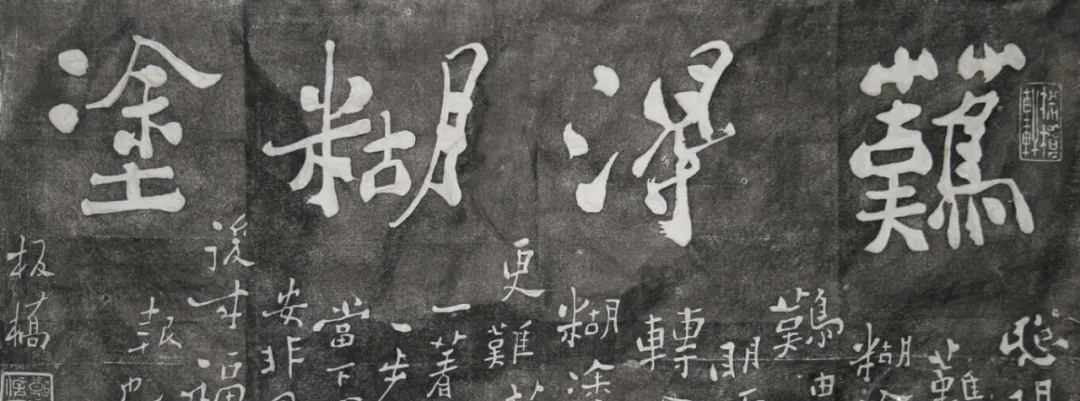 難得糊塗
聰明
難
糊
難由
明而
轉
糊塗
更難
一著
一步
當下
安非
後來福
報也
板橋